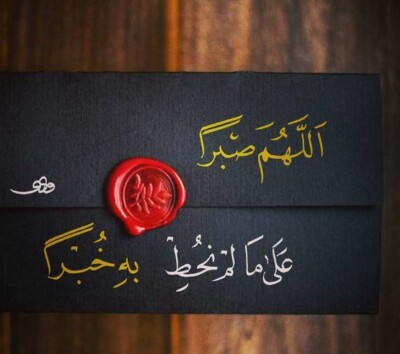 اَللَّهُمَ صَبْراً
عَلىٰ مَا لَمْ نُحِطِ بِهِ خُبْراً